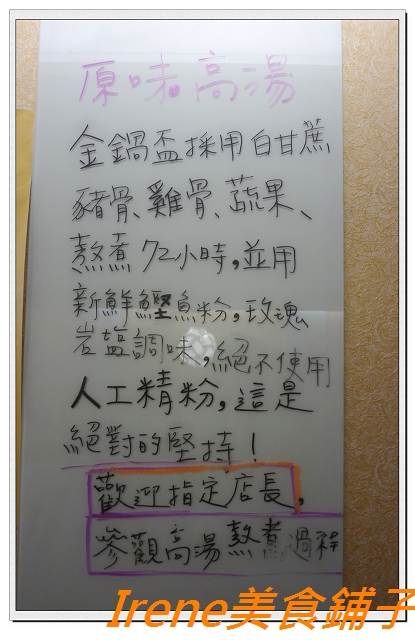 原味高湯
金鍋盃採用白甘蔗
豬骨、雞骨、蔬果、
熬煮72小時，並用
新鮮鰹魚粉，玫瑰
岩塩調味，絕不使用
人工精粉，這是
絕對的堅持！
歡迎指定店長，
參觀高湯熬煮過程
Irene美食鋪子